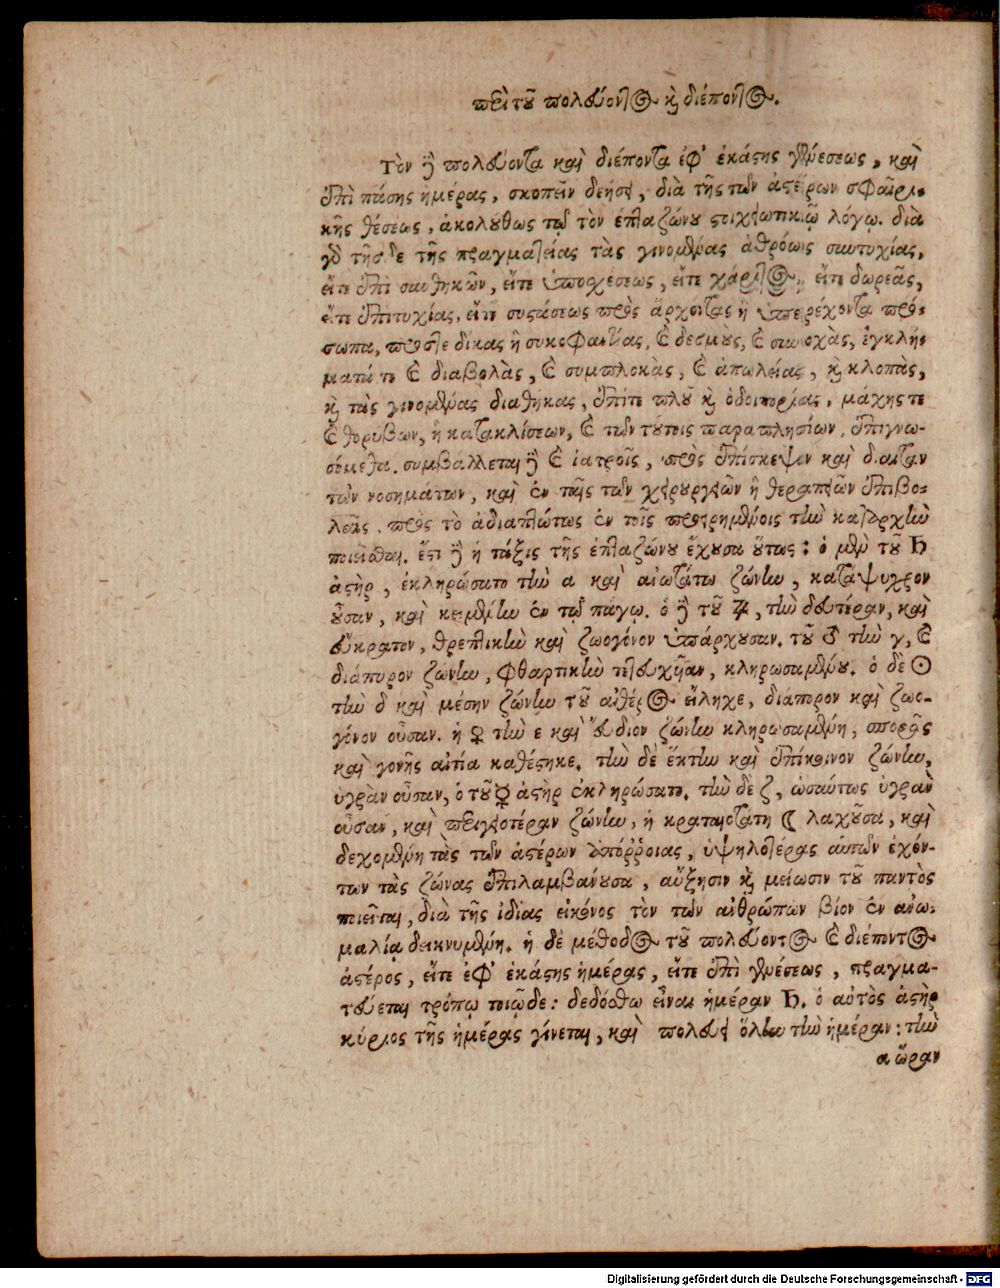 περὶ τοῦ πολεύοντος καὶ διέποντος.
Τὸν δὲ πολεύοντα καὶ διέποντα ἐφ' ἑκάστης γενέσεως, καὶ
ἐπὶ πάσης ἡμέρας, σκοπεῖν δεήσει, διὰ τῆς τῶν ἀστέρων σφαιρι-
κῆς θέσεως, ἀκολούθως τῷ τὸν ἑπταζώνου στιχειωτικῷ λόγῳ. διὰ
γὰρ τῆσδε τῆς πραγματείας τὰς γινομένας ἀθρόως συντυχίας,
εἴτε ἐπὶ συνθηκῶν, εἴτε ὑποσχέσεως, εἴτε χάριτος, εἴτε δωρεᾶς,
εἴτε ἐπιτυχίας, εἴτε συστάσεως πρὸς ἄρχοντας ἢ ὑπερέχοντα πρό-
σωπα, πρός τε δίκας ἢ συκοφαντίας, καὶ δεσμοὺς, καὶ συνοχὰς, ἐγκλή-
ματά τε καὶ διαβολὰς, καὶ συμπλοκὰς, καὶ ἀπωλείας, καὶ κλοπὰς,
καὶ τὰς γινομένας διαθήκας, ἐπί τε πλοῦ καὶ ὁδοιπορίας, μάχης τε
καὶ θορύβων, ἢ κατακλίσεων, καὶ τῶν τούτοις παραπλησίων, ἐπιγνω-
σόμεθα. συμβάλλεται δὲ καὶ ἰατροῖς, πρὸς ἐπίσκεψιν καὶ δίαιταν
τῶν νοσημάτων, καὶ ἐν ταῖς τῶν χειρουργειῶν ἢ θεραπειῶν ἐπιβο-
λαῖς. πρὸς τὸ ἀδιαπτώτως ἐν τοῖς προειρημένοις τὴν καταρχὴν
ποιεῖσθαι. ἔστι δὲ ἡ τάξις τῆς ἑπταζώνου ἔχουσα οὕτως: ὁ μὲν τοῦ ♄
ἀστὴρ, ἐκληρώσατο τὴν α καὶ ἀνωτάτω ζώνην, κατάψυχρον
οὖσαν, καὶ κειμένην ἐν τῷ πάγῳ. ὁ δὲ τοῦ ♃, τὴν δευτέραν, καὶ
εὔκρατον, θρεπτικὴν καὶ ζωογόνον ὑπάρχουσαν. τοῦ ♂ τὴν γ, καὶ
διάπυρον ζώνην, φθαρτικὴν τετευχυῖαν, κληρωσαμένου. ὁ δὲ ☉
τὴν δ καὶ μέσην ζώνην τοῦ αἰθέρος εἴληχε, διάπορον καὶ ζωο-
γόνον οὖσαν. ἡ ♀ τὴν ε καὶ εὔδιον ζώνην κληρωσαμένη, σπορᾶς
καὶ γονῆς αἰτία καθέστηκε. τὴν δὲ ἕκτην καὶ ἐπίκοινον ζώνην,
ὑγρὰν οὖσαν, ὁ τοῦ ☿ ἀστὴρ ἐκληρώσατο. τὴν δὲ ζ, ὡσαύτως ὑγρὰν
οὖσαν, καὶ περιγειοτέραν ζώνην, ἡ κραταιοτάτη ☾ λαχοῦσα, καὶ
δεχομένη τὰς τῶν ἀστέρων ἀπορροίας, ὑψηλοτέρας αὐτῶν ἐχόν-
των τὰς ζώνας ἐπιλαμβάνουσα, αὔξησιν καὶ μείωσιν τοῦ παντὸς
ποιεῖται, διὰ τῆς ἰδίας εἰκόνος τὸν τῶν ἀνθρώπων βίον ἐν ἀνω-
μαλίᾳ δεικνυμένη. ἡ δὲ μέθοδος τοῦ πολεύοντος καὶ διέποντος
ἀστέρος, εἴτε ἐφ' ἑκάστης ἡμέρας, εἴτε ἐπὶ γενέσεως, πραγμα-
τεύεται τρόπῳ τοιῷδε: δεδόσθω εἶναι ἡμέραν ♄. ὁ αὐτὸς ἀστὴρ
κύριος τῆς ἡμέρας γίνεται, καὶ πολεύει ὅλην τὴν ἡμέραν: τὴν
α ὥραν
Digitalisierung gefördert durch die Deutsche Forschungsgemeinschaft - DFG